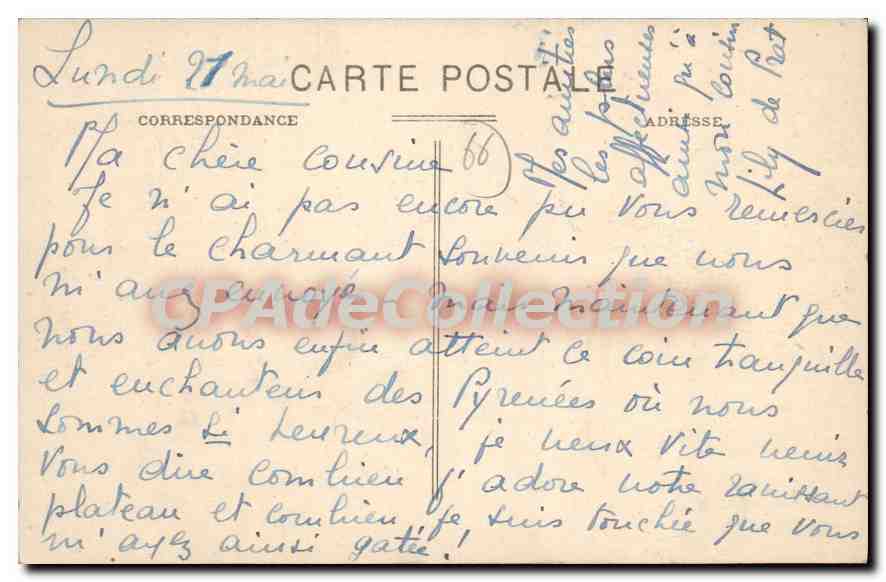 Lundi 27 mai
CARTE POSTALE
CORRESPONDANCE
ADRESSE
66
Ma chère cousine
Je n'ai pas encore pu vous remercier
pour le charmant souvenir que vous
m'avez envoyé - mais maintenant que
nous avons enfin atteint ce coin tranquille
et enchanteur des Pyrenées où nous
sommes si heureux, je veux vite venir
vous dire combien j'adore votre ravissant
plateau et combien je suis touchée que vous
m'ayez ainsi gatée!
Mes amitiés
les plus
affectueuses
ainsi qu'à
mon cousin
Lily de Prat
CPAdeCollection